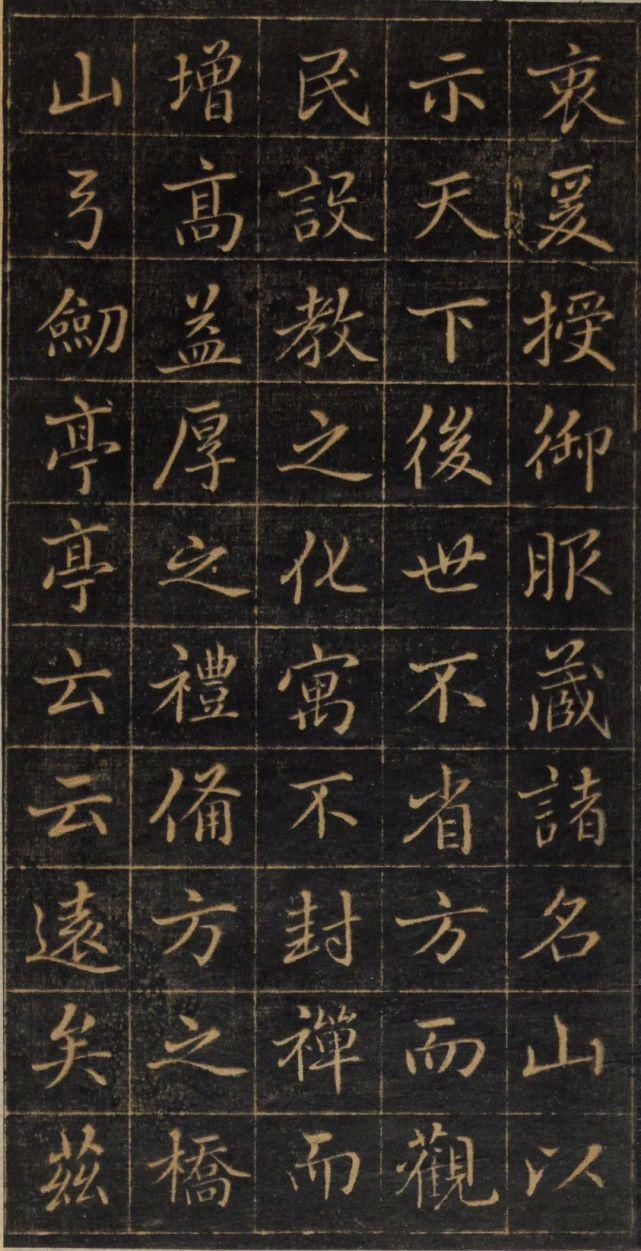 衷爰授御服藏諸名山以
示天下後世不省方而觀
民設教之化寓不封禪而
增高益厚之禮備方之橋
山弓劒亭亭云云遠矣茲